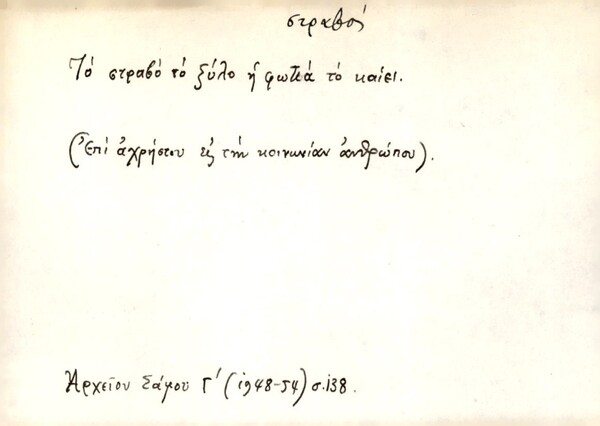 στραβό
Τό στραβό τό ξύλο ἡ φωτιά τό καίει.
(Ἐπί ἀχρήστου εἰς τήν κοινωνίαν ἀνθρώπου).
Ἀρχεῖον Σάμου Γ' (1948-54) σ.138.